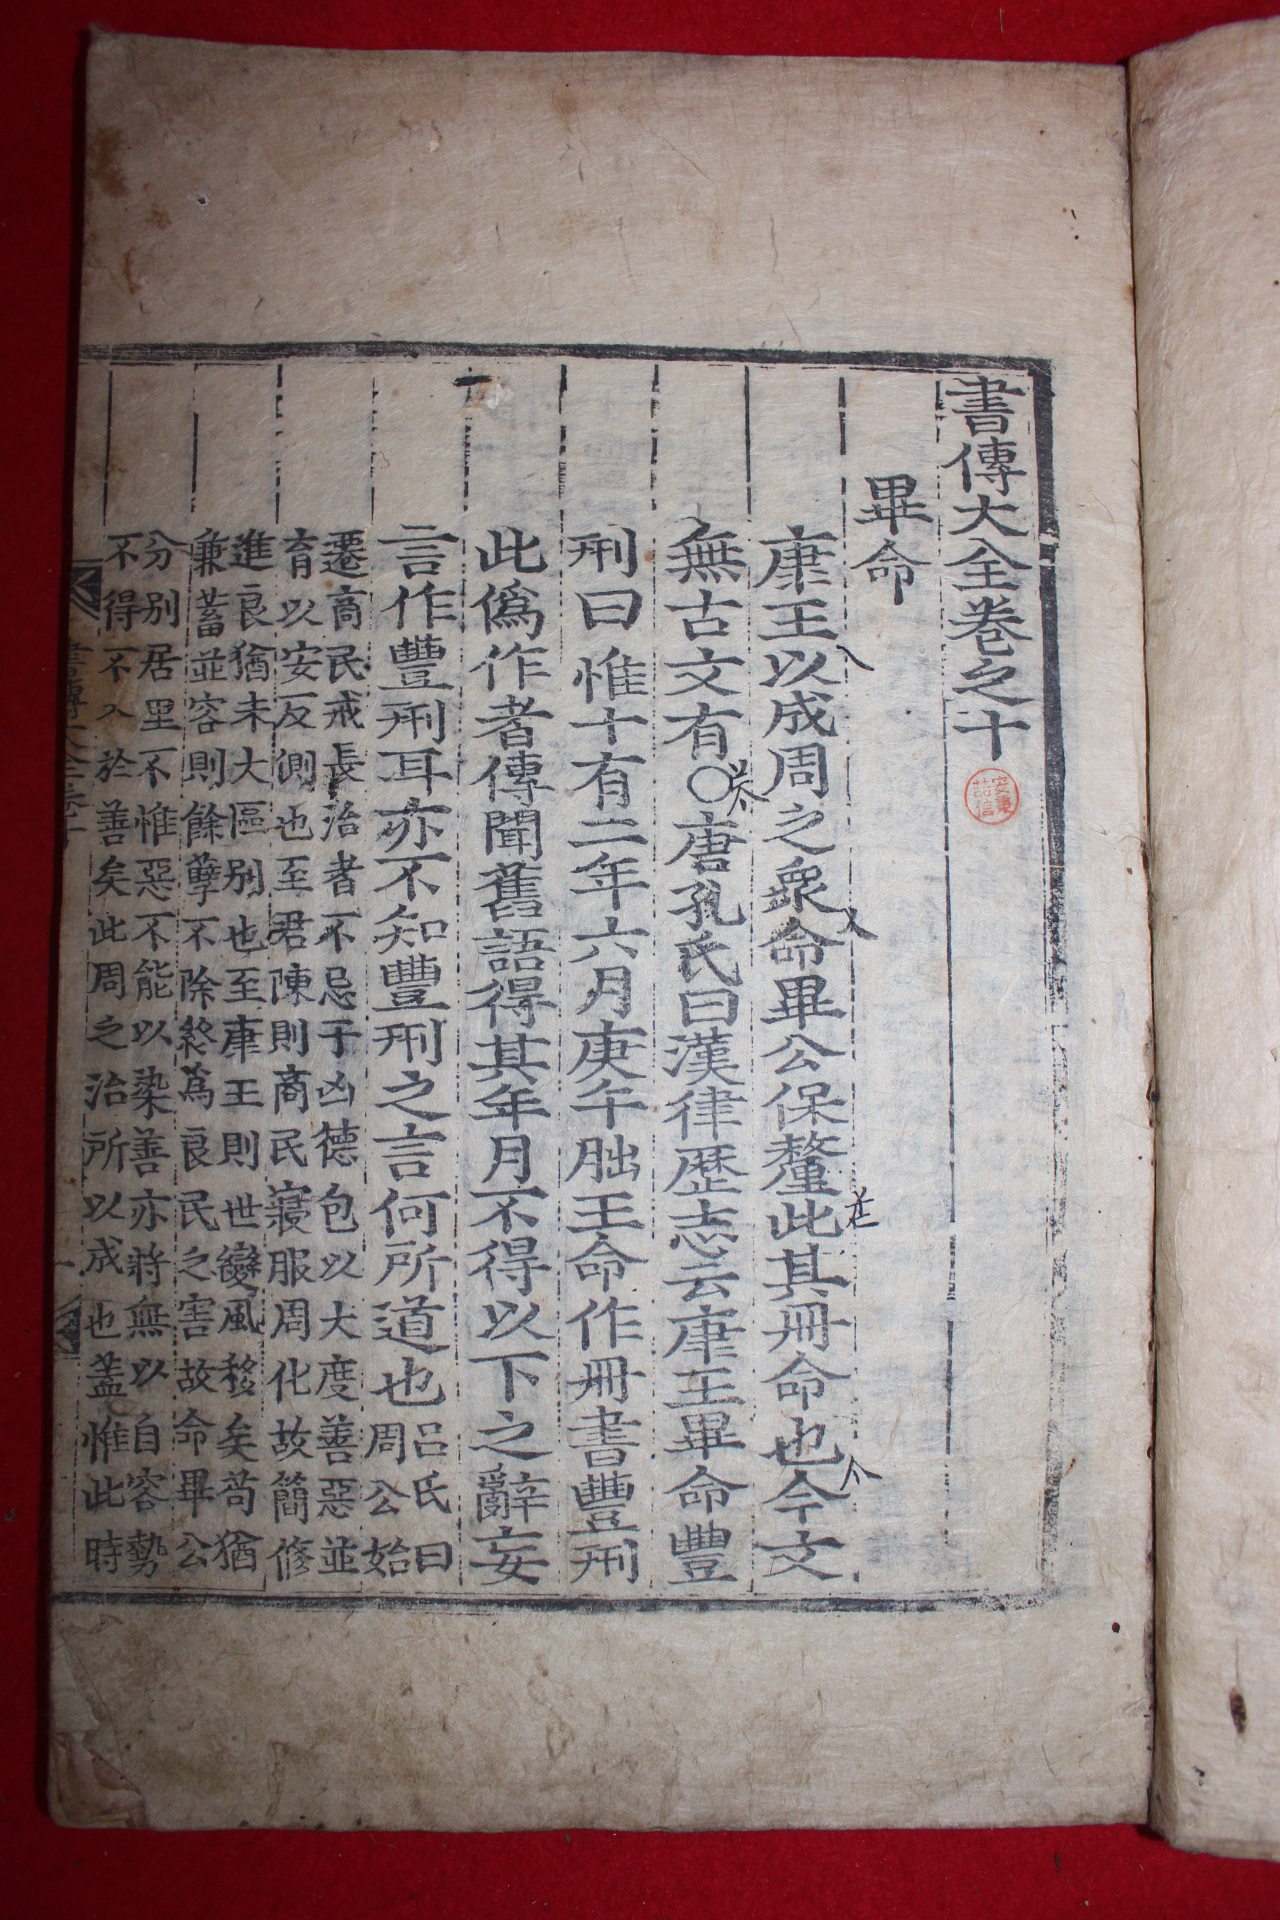 書傳大全卷之十
畢命
康王以成周之衆命畢公保釐此其冊命也今文
無古文有○唐孔氏曰漢律歷志云康王畢命豐
刑曰惟十有二年六月庚午朏王命作冊書豐刑
此僞作者傳聞舊語得其年月不得以下之辭妄
言作豐刑耳亦不知豐刑之言何所道也
呂氏曰
周公始
遷商民戒長治者不忌于凶德包以大度善惡並
育以安反側也至君陳則商民寢服周化故簡修
進良猶未大區别也至康王則世變風移矣苟猶
兼蓄並容則餘孽不除終為良民之害故命畢公
分别居里不惟惡不能以染善亦將無以自容勢
不得不入於善矣此周之治所以成也盖惟此時